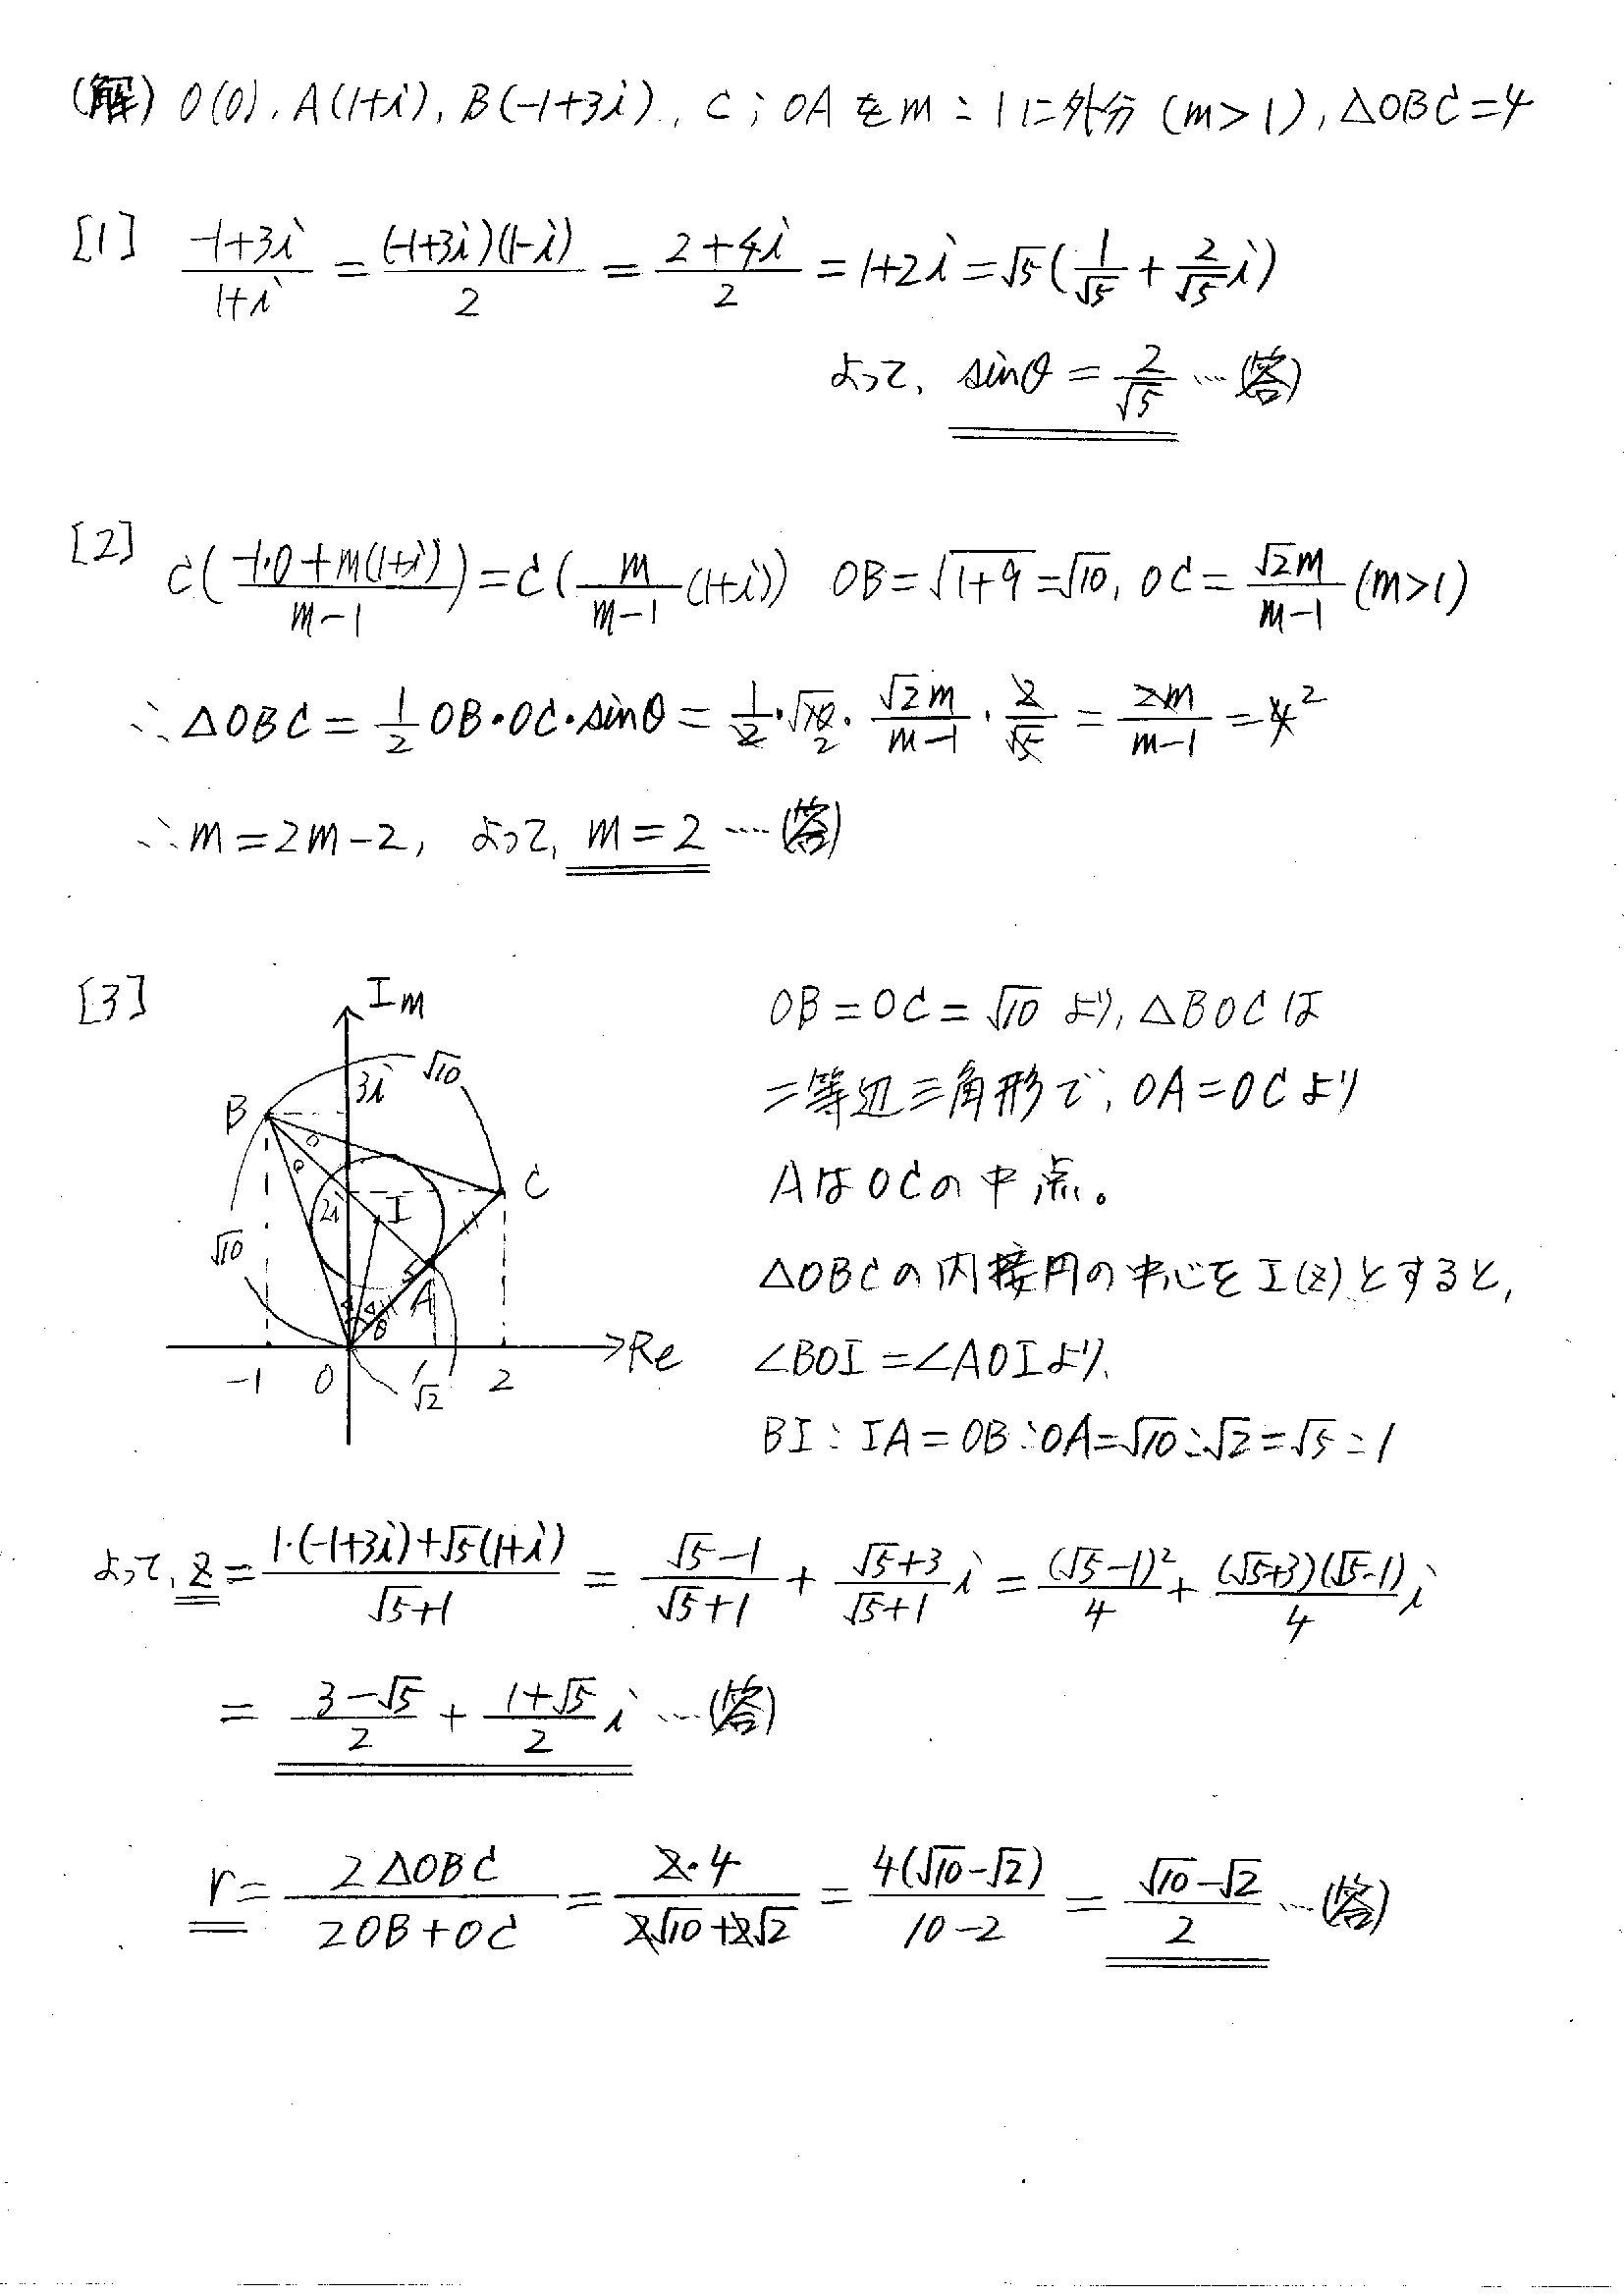 (解) O(0), A(1+i), B(-1+3i), C; OAをm:1に外分 (m>1), △OBC=4
[1] \frac{-1+3i}{1+i} = \frac{(-1+3i)(1-i)}{2} = \frac{2+4i}{2} = 1+2i = √5(\frac{1}{√5} + \frac{2}{√5}i)
よって, sinθ = \frac{2}{√5} …(答)
[2] C(\frac{-1・0+m(1+i)}{m-1}) = C(\frac{m}{m-1}(1+i)) OB=√{1+9}=√10, OC=\frac{√2m}{m-1} (m>1)
∴△OBC = \frac{1}{2}OB・OC・sinθ = \frac{1}{2}・√10・\frac{√2m}{m-1}・\frac{2}{√5} = \frac{2m}{m-1} = 4 2
∴m=2m-2, よって, m=2 …(答)
[3]
Im
3i
√10
B
C
2i
I
√10
A
θ
Re
-1 O 1 √2 2
OB=OC=√10 より, △BOCは
二等辺三角形で, OA=OCより
AはOCの中点。
△OBCの内接円の中心をI(z)とすると,
∠BOI=∠AOIより,
BI:IA=OB:OA=√10:√2=√5:1
よって, z = \frac{1・(-1+3i)+√5(1+i)}{√5+1} = \frac{√5-1}{√5+1} + \frac{√5+3}{√5+1}i = \frac{(√5-1)^2}{4} + \frac{(√5+3)(√5-1)}{4}i
= \frac{3-√5}{2} + \frac{1+√5}{2}i …(答)
r = \frac{2△OBC}{2OB+OC} = \frac{2・4}{2√10+2√2} = \frac{4(√10-√2)}{10-2} = \frac{√10-√2}{2} …(答)